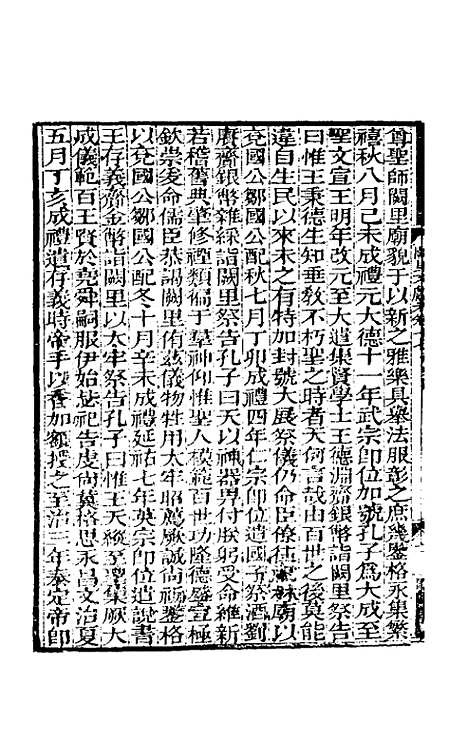 尊聖師闕里廟貌于以新之雅樂具舉法服彭之庶幾鑒格永集繁
禧秋八月己未成禮元大德十一年武宗卽位加號孔子爲大成至
聖文宣王明年改元至大遣集賢學士王德淵齎銀幣詣闕里祭告
曰惟王秉德生知垂敎不朽聖之時者天何言哉由百世之後莫能
違自生民以來未之有特加封號大展祭儀仍命臣僚往林廟以
兗國公鄒國公配秋七月丁卯成禮四年仁宗卽位遣國子祭酒劉
賡齎銀幣雜綵詣闕里祭告孔子曰天以神器畀付朕躬受命維新
若稽舊典肇修禋類徧于羣神仰惟聖人模範百世功隆德盛宣極
欽崇爰命儒臣恭謁闕里侑玆儀物牲用太牢昭薦厥誠尚祈鑒格
以兗國公鄒國公配冬十月辛未成禮延祐七年英宗卽位遣說書
王存義齎金幣詣闕里以太牢祭告孔子曰惟王天縱至聖集厥大
成儀範百王賢於堯舜嗣服伊始是祀告虔尚冀格思永昌文治夏
五月丁亥成禮遣存義時帝手以香加額授之至治三年泰定帝卽